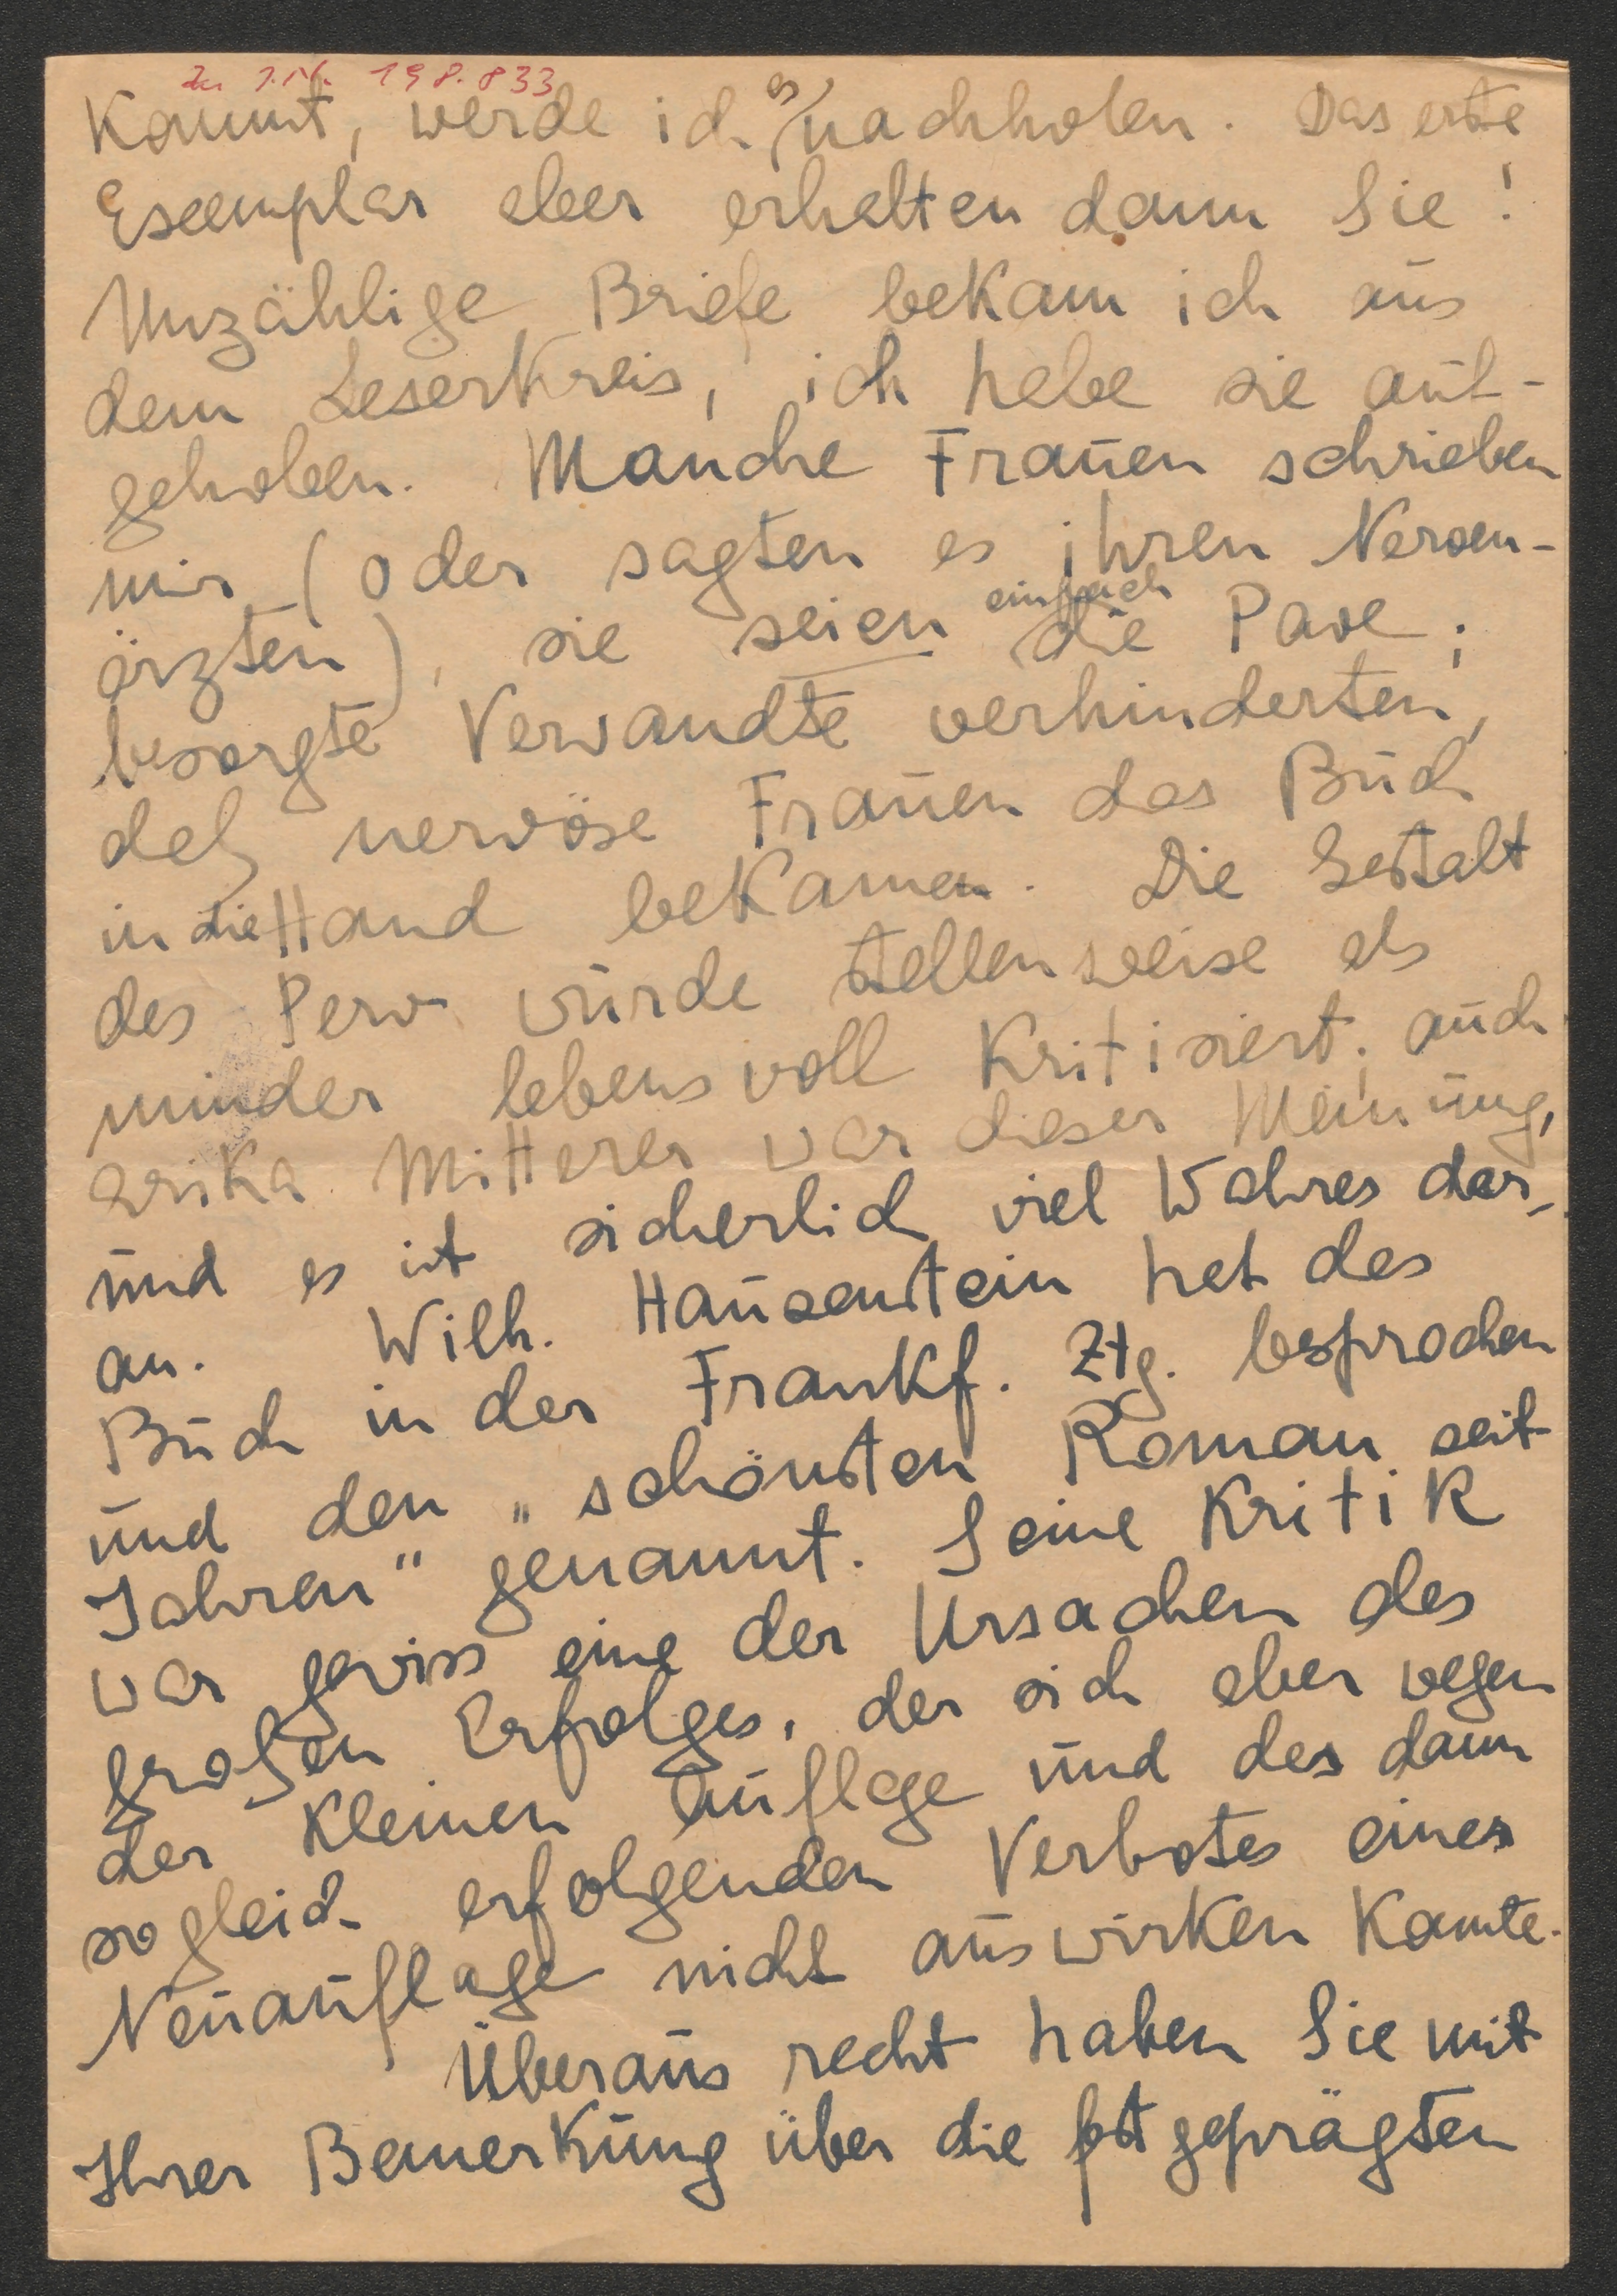 Zu I.N. 198.833
kommt, werde ich es nachholen. Das erste
Exemplar aber erhalten dann Sie!
Unzählige Briefe bekam ich aus
dem Leserkreis, ich habe sie auf-
gehoben. Manche Frauen schrieben
mir (oder sagten es ihren Nerven-
ärzten), sie seien einfach die Pave;
besorgte Verwandte verhinderten,
daß nervöse Frauen das Buch
in die Hand bekamen. Die Gestalt
des Perv wurde stellenweise als
minder lebensvoll kritisiert; auch
Erika Mitterer war dieser Meinung,
und es ist sicherlich viel Wahres dar-
an. Wilh. Hausenstein hat das
Buch in der Frankf. Ztg. besprochen
und den „schönsten Roman seit
Jahren" genannt. Seine Kritik
war gewiss eine der Ursachen des
großen Erfolges, der sich aber wegen
der kleinen Auflage und des dann
sogleich erfolgenden Verbotes einer
Neuauflage nicht auswirken konnte.
Überaus recht haben Sie mit
Ihrer Bemerkung über die festgeprägten